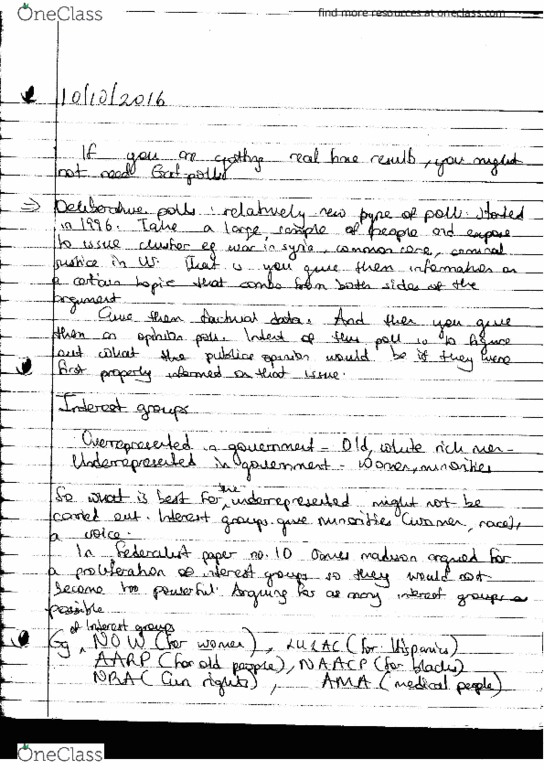 OneClass
find more resources at oneclass.com
10/10/2016
If you are getting real time results, you might
not need Exit polls
⇒ Deliberative polls: relatively new type of poll. started
in 1996. Take a large sample of people and expose
to issue cluster eg war in syria, common core, criminal
justice in US. That is you give them information on
a certain topic that comes from both sides of the
argument
Give them factual data. And then you give
them an opinion poll. Intent of this poll is to figure
out what the public opinion would be if they were
first properly informed on that issue.
Interest groups
Overrepresented in government - Old, white rich men-
Underrepresented in government - women, minorities
So what is best for the underrepresented might not be
carried out. Interest groups give minorities (women, races),
a voice.
In Federalist paper no. 10 James madison argued for
a proliferation of interest groups so they would not
become too powerful. Arguing for as many interest groups as
possible
of Interest groups
Eg, NOW (for women), LULAC (for Hispanics)
AARP (for old people), NAACP (for blacks)
NRA (Gun rights), AMA (medical people)
OneClass